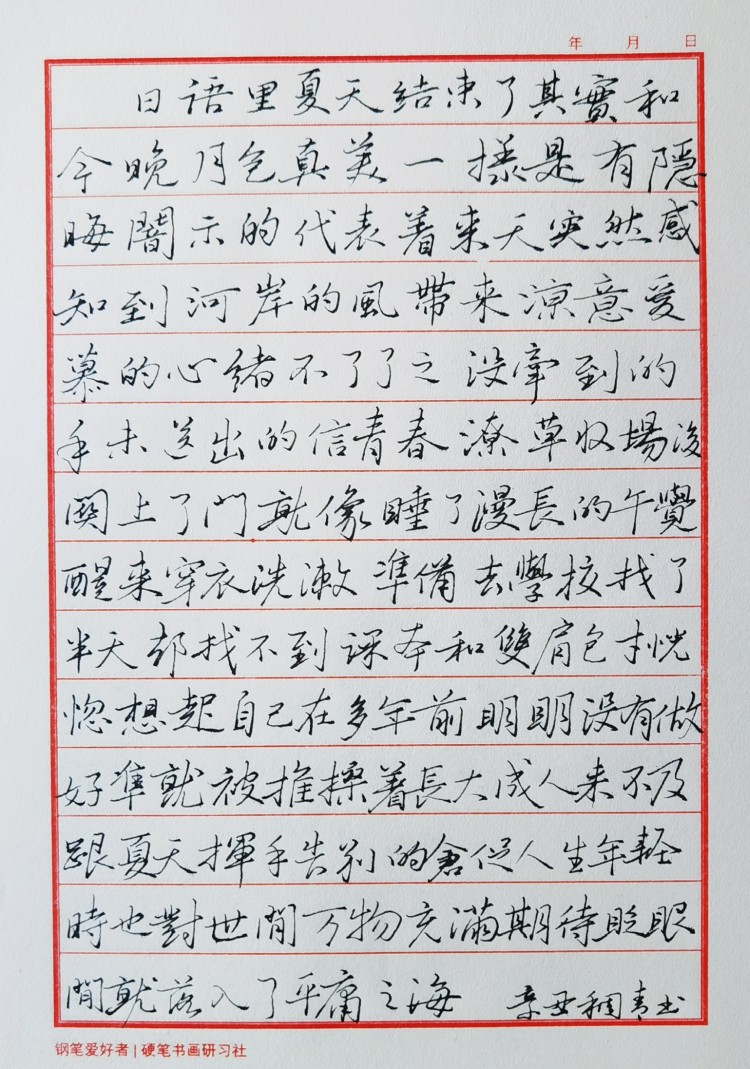 年 月 日
日语里夏天结束了其實和
今晚月色真美一樣是有隱
晦闇示的代表着来天突然感
知到河岸的風帶来涼意爱
慕的心緒不了了之没牽到的
手未送出的信青春潦草收場後
関上了門就像睡了漫長的午覺
醒来穿衣洗漱準備去學校找了
半天却找不到課本和雙肩包才恍
惚想起自己在多年前明明没有做
好準就被推搡着長大成人来不及
跟夏天揮手告别的倉促人生年輕
時也對世間万物充滿期待眨眼
間就落入了平庸之海 辛丑稠青书
钢笔爱好者 | 硬笔书画研习社